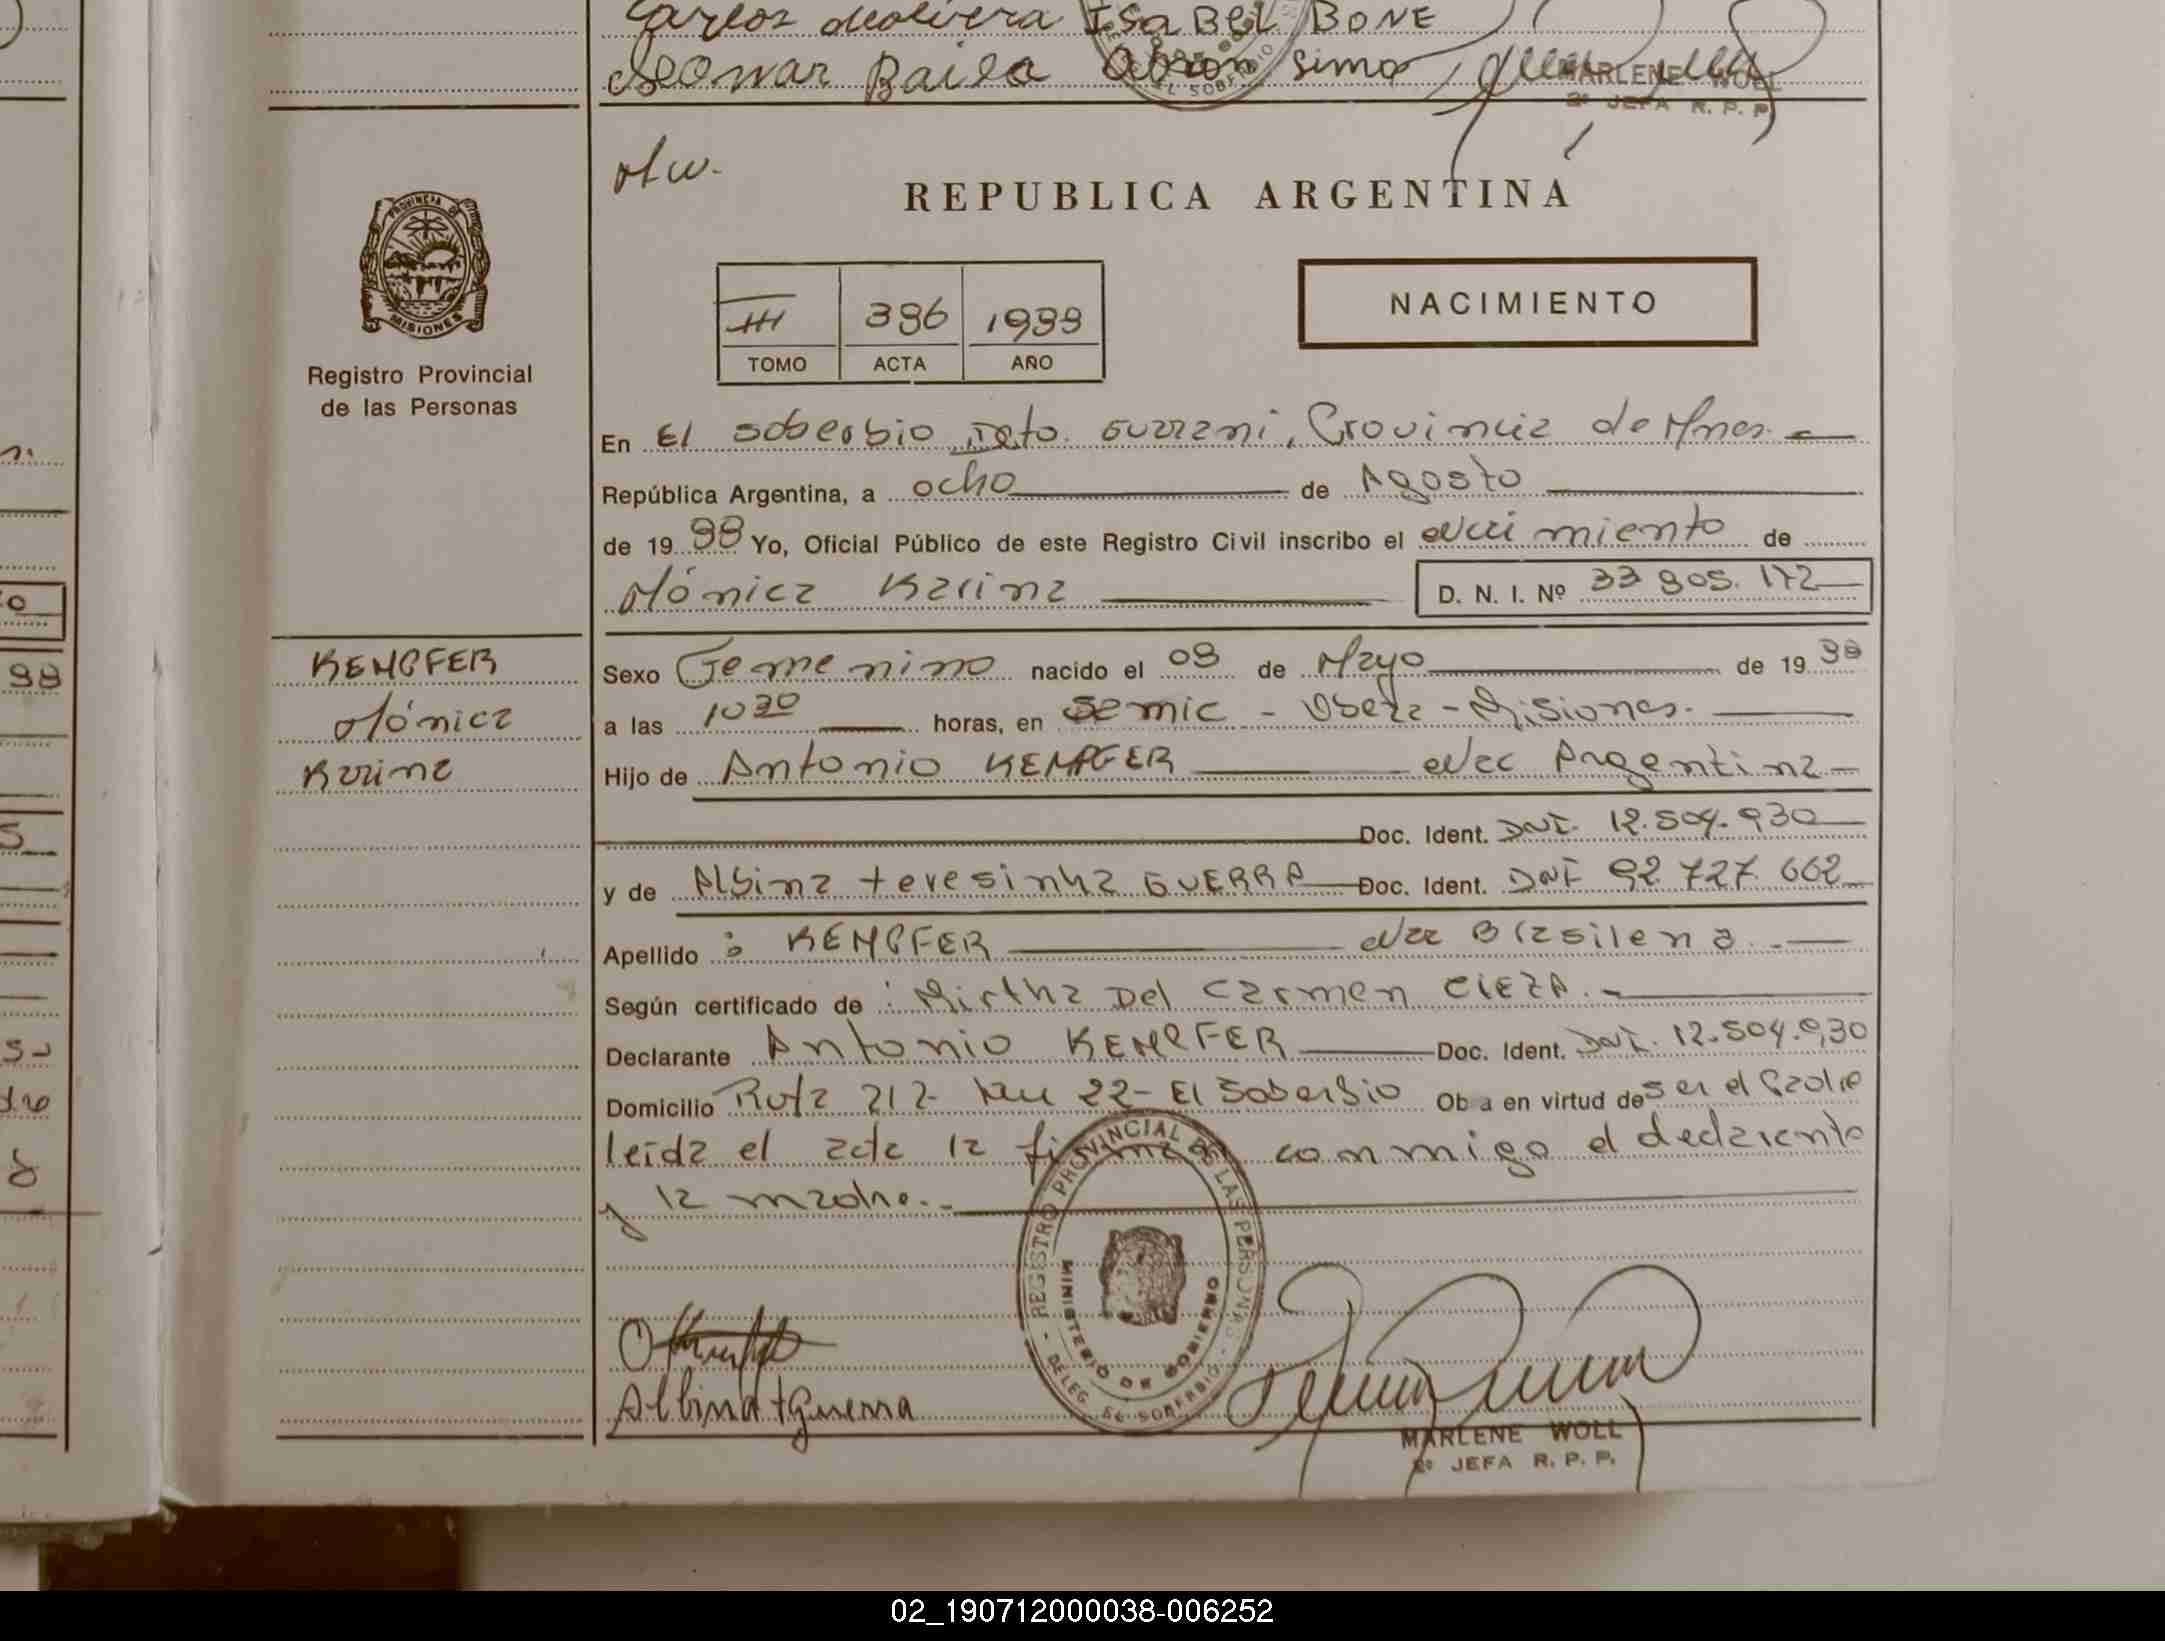 Carlos deolivera ISABEL BONE
Leomar Baila Abron Simo
EL SOBERBIO
MARLENE WOLL
2º JEFA R. P. P.
Mw.
REPUBLICA ARGENTINA
PROVINCIA DE
MISIONES
Registro Provincial
de las Personas
III 396 1998
TOMO ACTA AÑO
NACIMIENTO
En El Soberbio Dto. Guarani, Provincia de Mnes.
República Argentina, a ocho de Agosto
de 19 98 Yo, Oficial Público de este Registro Civil inscribo el Nacimiento de
Mónica Karina D. N. I. Nº 33 905. 172
KEMPFER
Mónica
Karina
Sexo Femenino nacido el 09 de Mayo de 19 98
a las 10 30 horas, en Semic - Obera - Misiones.
Hijo de Antonio KEMPFER Nac Argentina
Doc. Ident. DNI. 12.504.930
y de Albina teresinha GUERRA Doc. Ident. DNI 92 727 662
Apellido : KEMPFER Nac Brasilena
Según certificado de : Mirtha Del Carmen CIEZA.
Declarante Antonio KEMPFER Doc. Ident. DNI. 12.504.930
Domicilio Ruta 212 Km 22- El Soberbio Ob a en virtud de ser el Padre
leida el acta la firman conmigo el declarante
y la madre.
REGISTRO PROVINCIAL DE LAS PERSONAS
MINISTERIO DE GOBIERNO
DELEG. EL SOBERBIO
Albina t guerra
MARLENE WOLL
2º JEFA R. P. P.
02_190712000038-006252